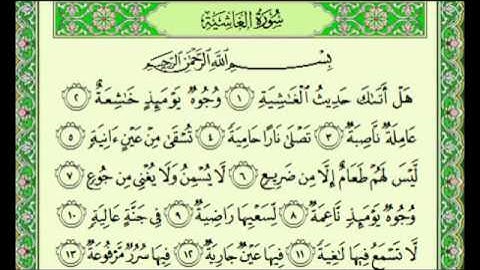 سُورَةُ الغَاشِيَةِ
بِسْمِ ٱللَّهِ ٱلرَّحْمَٰنِ ٱلرَّحِيمِ
هَلْ أَتَىٰكَ حَدِيثُ ٱلْغَٰشِيَةِ ١ وُجُوهٌ يَوْمَئِذٍ خَٰشِعَةٌ ٢
عَامِلَةٌ نَّاصِبَةٌ ٣ تَصْلَىٰ نَارًا حَامِيَةً ٤ تُسْقَىٰ مِنْ عَيْنٍ ءَانِيَةٍ ٥
لَّيْسَ لَهُمْ طَعَامٌ إِلَّا مِن ضَرِيعٍ ٦ لَّا يُسْمِنُ وَلَا يُغْنِى مِن جُوعٍ ٧
وُجُوهٌ يَوْمَئِذٍ نَّاعِمَةٌ ٨ لِّسَعْيِهَا رَاضِيَةٌ ٩ فِى جَنَّةٍ عَالِيَةٍ ١٠
لَّا تَسْمَعُ فِيهَا لَٰغِيَةً ١١ فِيهَا عَيْنٌ جَارِيَةٌ ١٢ فِيهَا سُرُرٌ مَّرْفُوعَةٌ ١٣